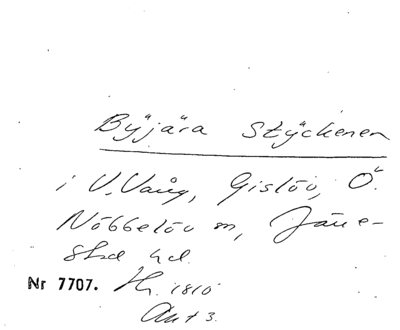 Byjära Styckenen
i V. Vång, Gislöv, Ö.
Nöbbelöv m, Järre-
stad hd.
Nr 7707. Hr. 1810
Akt 3.